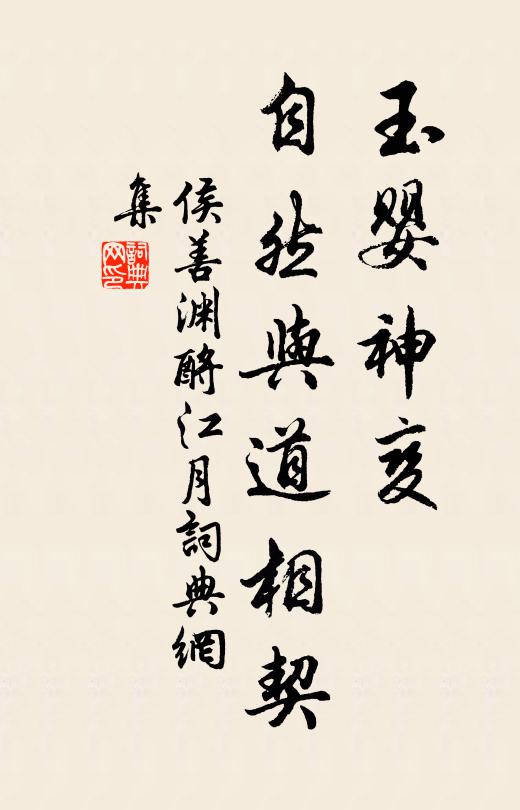 玉嬰神变
自然與道相契
侯善渊酹江月詞典網
集
詞典网印